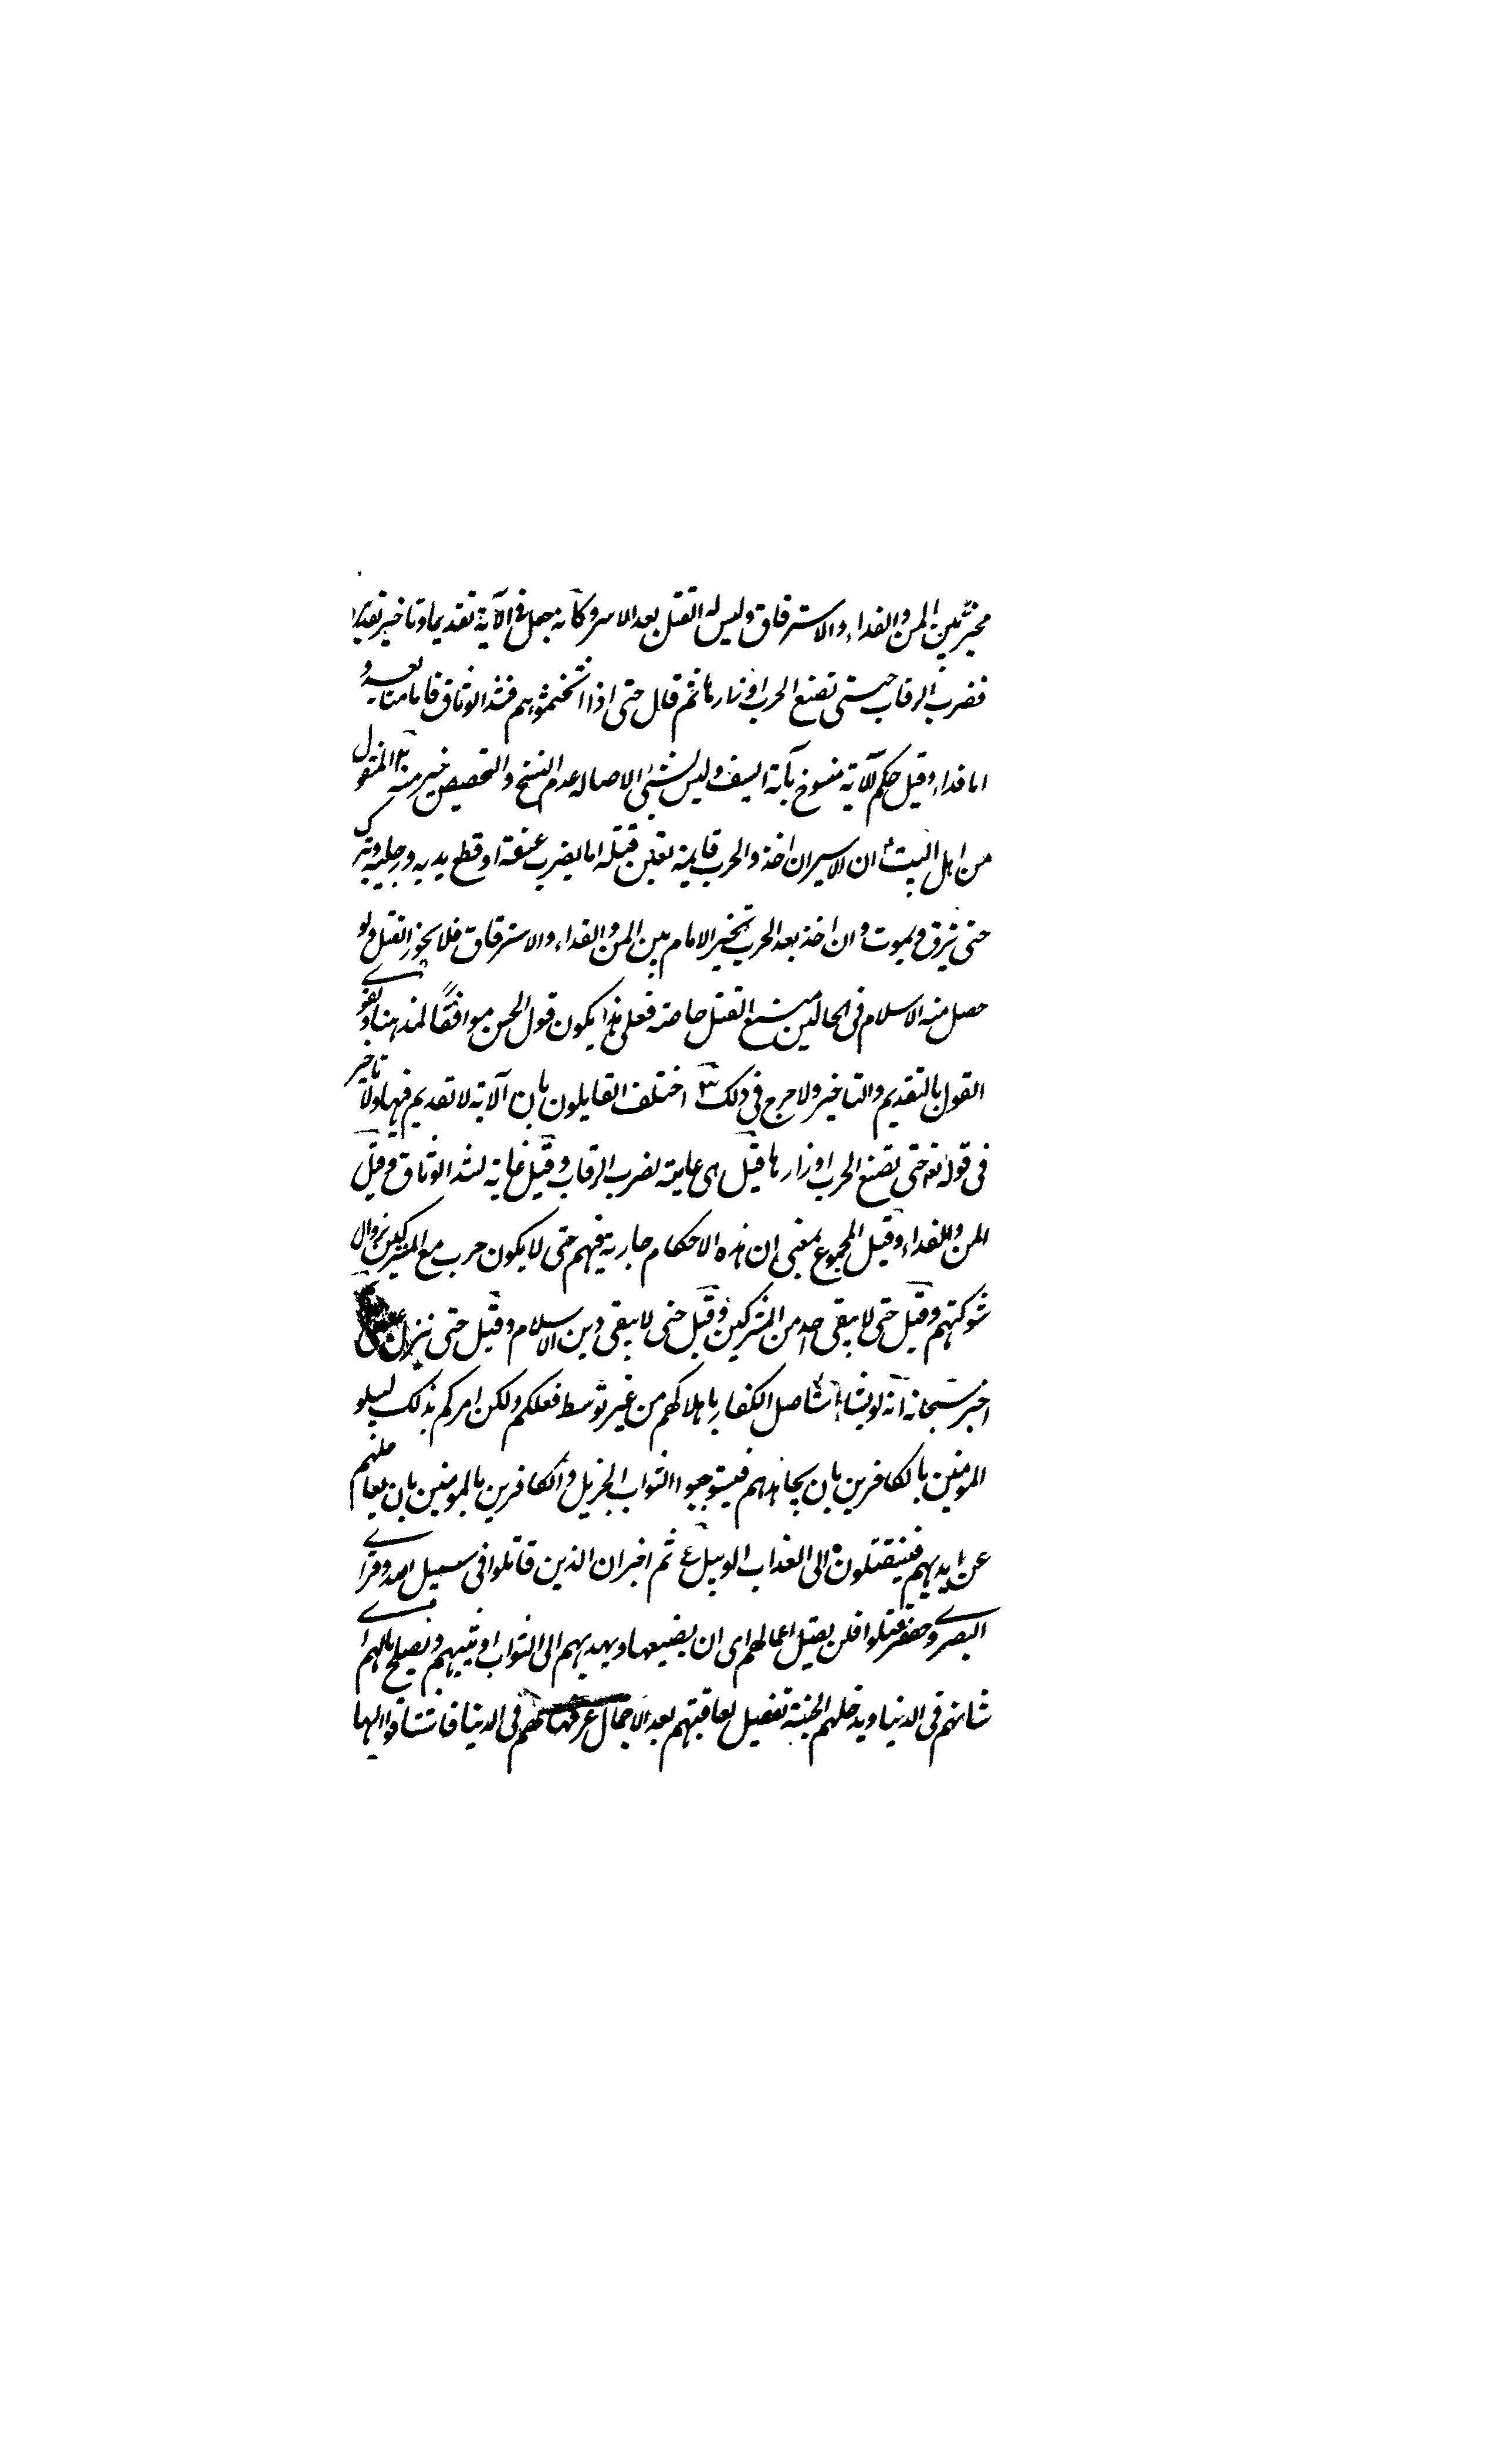 مخيّر بين المن والفداء والاسترقاق وليس له القتل بعد الاسر وكأنه جعل في الآية تقديما وتاخيرا تقديره
فضرب الرقاب حتى تضع الحرب اوزارها ثم قال حتى اذا اثخنتموهم فشدّ الوثاق فاما منا بعد و
اما فداء وقيل حكم الآية منسوخ بآية السيف وليس بشئ لاصالة عدم النسخ والتخصيص خير منه ٢ المنقول
من اهل البيت ع ان الاسير ان اخذ والحرب قايمة تعين قتله اما بضرب عنقه او قطع يديه ورجليه وتركه
حتى ينزف ويموت وان اخذ بعد الحرب تخير الامام بين المن والفداء والاسترقاق فلا يجوز القتل ولو
حصل منه الاسلام في الحالين منع القتل خاصة فعلى هذا يكون قول الحسن موافقًا لمذهبنا ويقوى
القول بالتقديم والتاخير ولا حرج في ذلك ٣ اختلف القايلون بان الآية لا تقديم فيها ولا تاخير
في قوله تع حتى تضع الحرب اوزارها قيل هى غاية لضرب الرقاب وقيل غاية لشد الوثاق وقيل
للمن والفداء وقيل للمجموع بمعنى ان هذه الاحكام جارية فيهم حتى لا يكون حرب مع المشركين بزوال
شوكتهم وقيل حتى لا يبقى احد من المشركين وقيل حتى لا يبقى دين الا الاسلام وقيل حتى ينزل عيسى
اخبر سبحانه انه لو يشاء استاصل الكفار باهلاكهم من غير توسط فعلكم ولكن امركم بذلك ليبلو
المومنين بالكافرين بان يجاهدهم فيستوجبوا الثواب الجزيل والكافرين بالمومنين بان يعاجلهم
على ايديهم فينتقلون الى العذاب الوبيل ٤ ثم اخبر ان الذين قاتلوا في سبيل الله وقرا
البصرى وحفص قتلوا فلن يضل اعمالهم اى لن يضيعها ويهديهم الى الثواب او يثيبهم ويصلح بالهم اى
شانهم في الدنيا ويدخلهم الجنة تفصيل لعاقبتهم بعد الاجمال عرفها لهم في الدنيا فاشتاقوا اليها